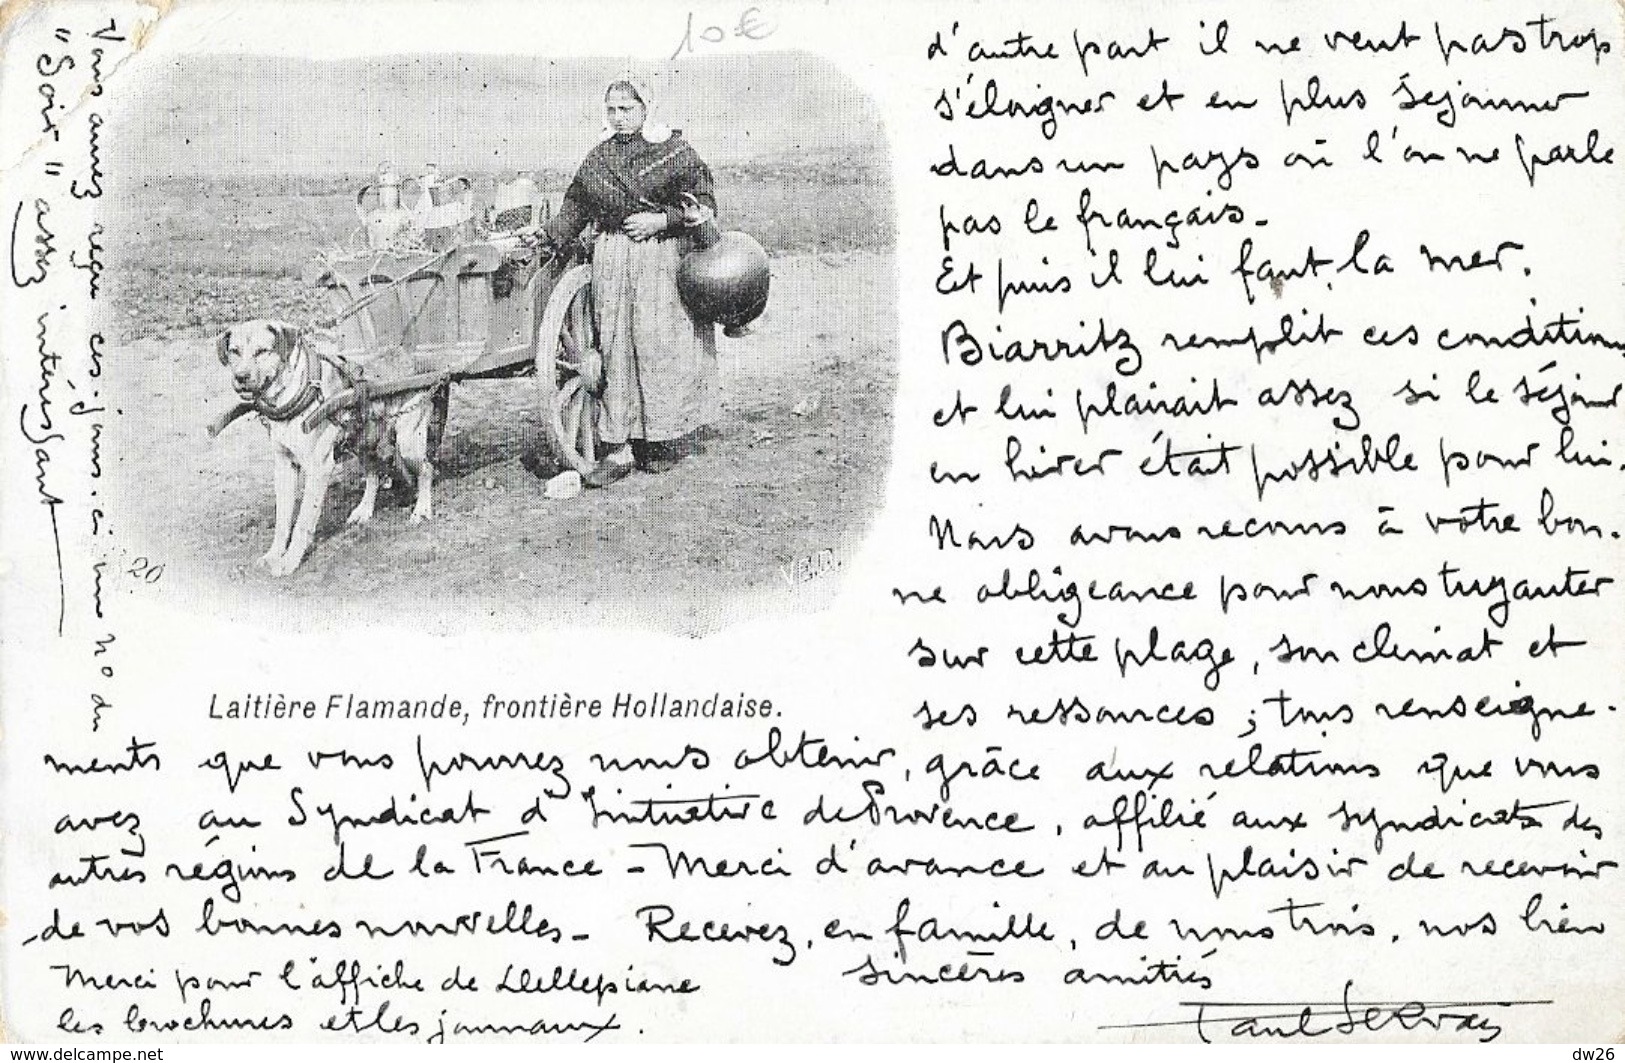 10€
d'autre part il ne veut pas trop
s'éloigner et en plus séjourner
dans un pays où l'on ne parle
pas le français -
Et puis il lui faut la mer.
Biarritz remplit ces conditions
et lui plairait assez si le séjour
en hiver était possible pour lui.
Nous avons recours à votre bon-
ne obligeance pour nous tuyauter
sur cette plage, son climat et
ses ressources ; tous renseigne-
ments que vous pourrez nous obtenir, grâce aux relations que vous
avez au Syndicat d'Initiative de Provence, affilié aux syndicats des
autres régions de la France - Merci d'avance et au plaisir de recevoir
de vos bonnes nouvelles - Recevez, en famille, de nous trois, nos bien
sincères amitiés
Paul Servais
Merci pour l'affiche de Dellepiane
les brochures et les journaux.
Vous aurez reçu ces jours-ci une no du
"Soir" assez intéressant
20
VED.
Laitière Flamande, frontière Hollandaise.
www.delcampe.net
dw26